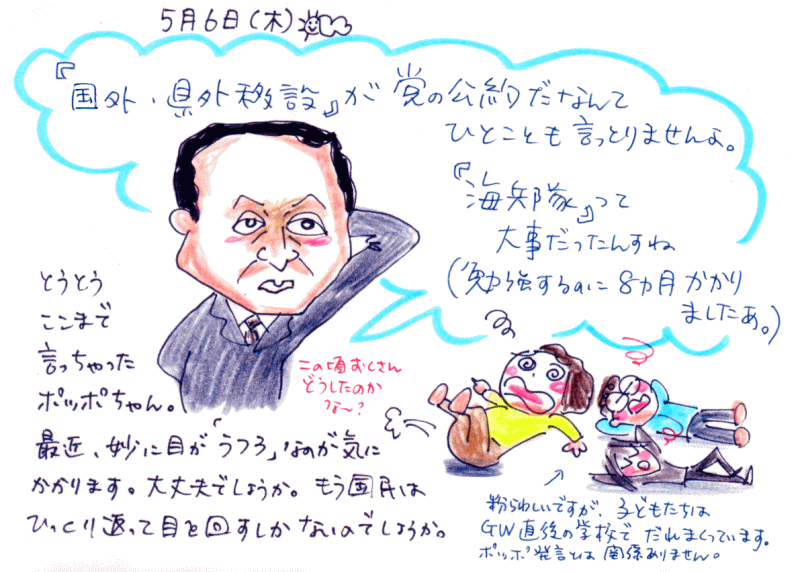 5月6日(木)
『国外・県外移設』が党の公約だなんて
ひとことも言っとりませんよ。
『海兵隊』って
大事だったんすね
(勉強するのに8カ月かかり
ましたあ。)
とうとう
ここまで
言っちゃった
ポッポちゃん。
この頃おくさん
どうしたのか
な〜?
最近、妙に目が「うつろ」なのが気に
かかります。大丈夫でしょうか。もう国民は
ひっくり返って目を回すしかないのでしょうか。
紛らわしいですが、子どもたちは
GW直後の学校でだれまくっています。
ポッポ発言とは関係ありません。